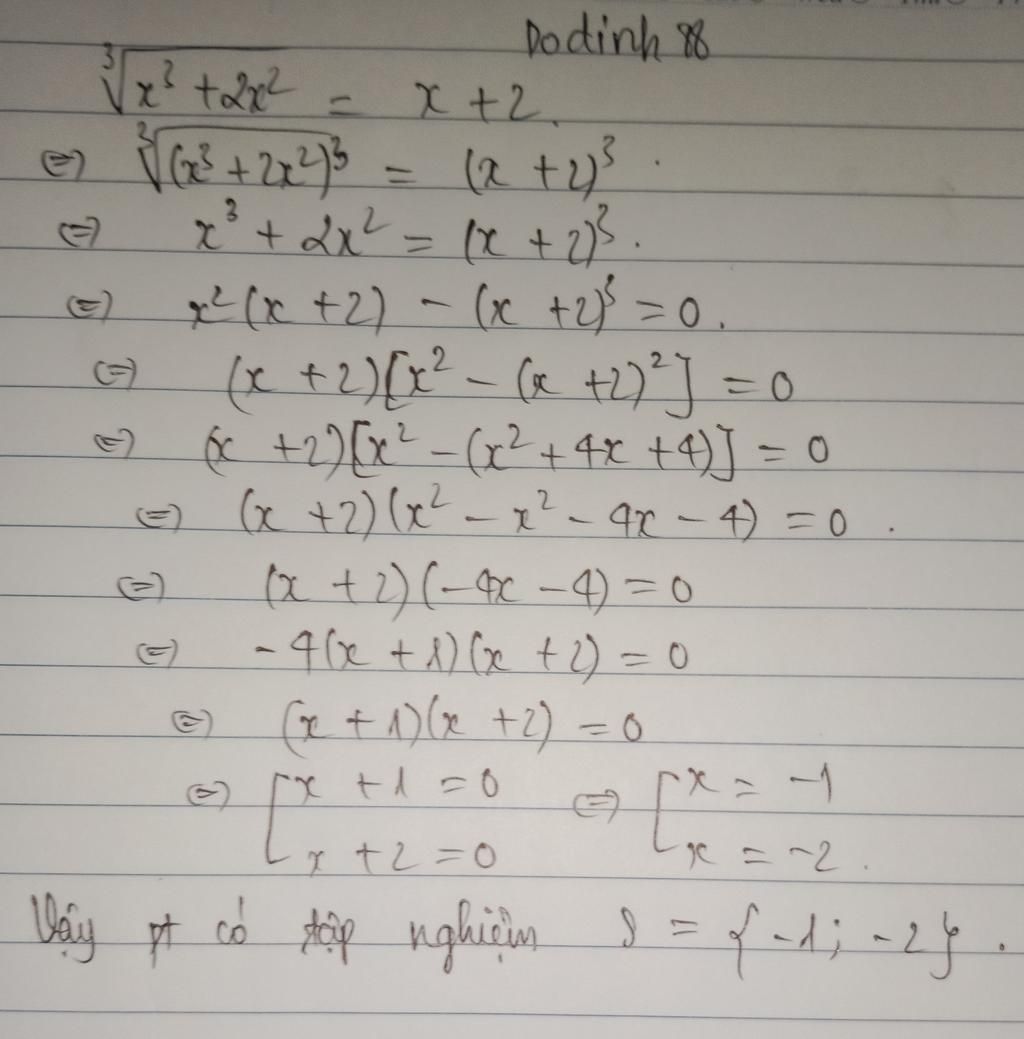 Dodinh 88
∛(x³ + 2x²) = x + 2.
⇔ ∛(x³ + 2x²)³ = (x + 2)³.
⇔ x³ + 2x² = (x + 2)³.
⇔ x²(x + 2) - (x + 2)³ = 0.
⇔ (x + 2)[x² - (x + 2)²] = 0
⇔ (x + 2)[x² - (x² + 4x + 4)] = 0
⇔ (x + 2)(x² - x² - 4x - 4) = 0.
⇔ (x + 2)(-4x - 4) = 0
⇔ -4(x + 1)(x + 2) = 0
⇔ (x + 1)(x + 2) = 0
⇔ [x + 1 = 0 ⇔ [x = -1
x + 2 = 0 x = -2.
Vậy pt có tập nghiệm S = {-1; -2}.